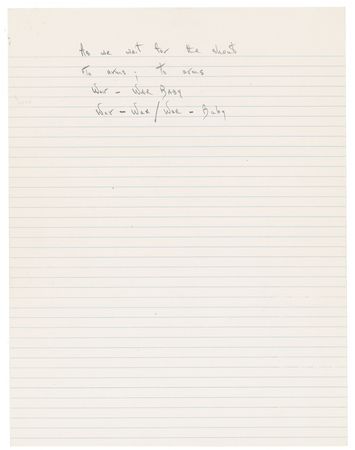 As we wait for the shout
To arms; To arms
War - War Baby
War - War / War - Baby